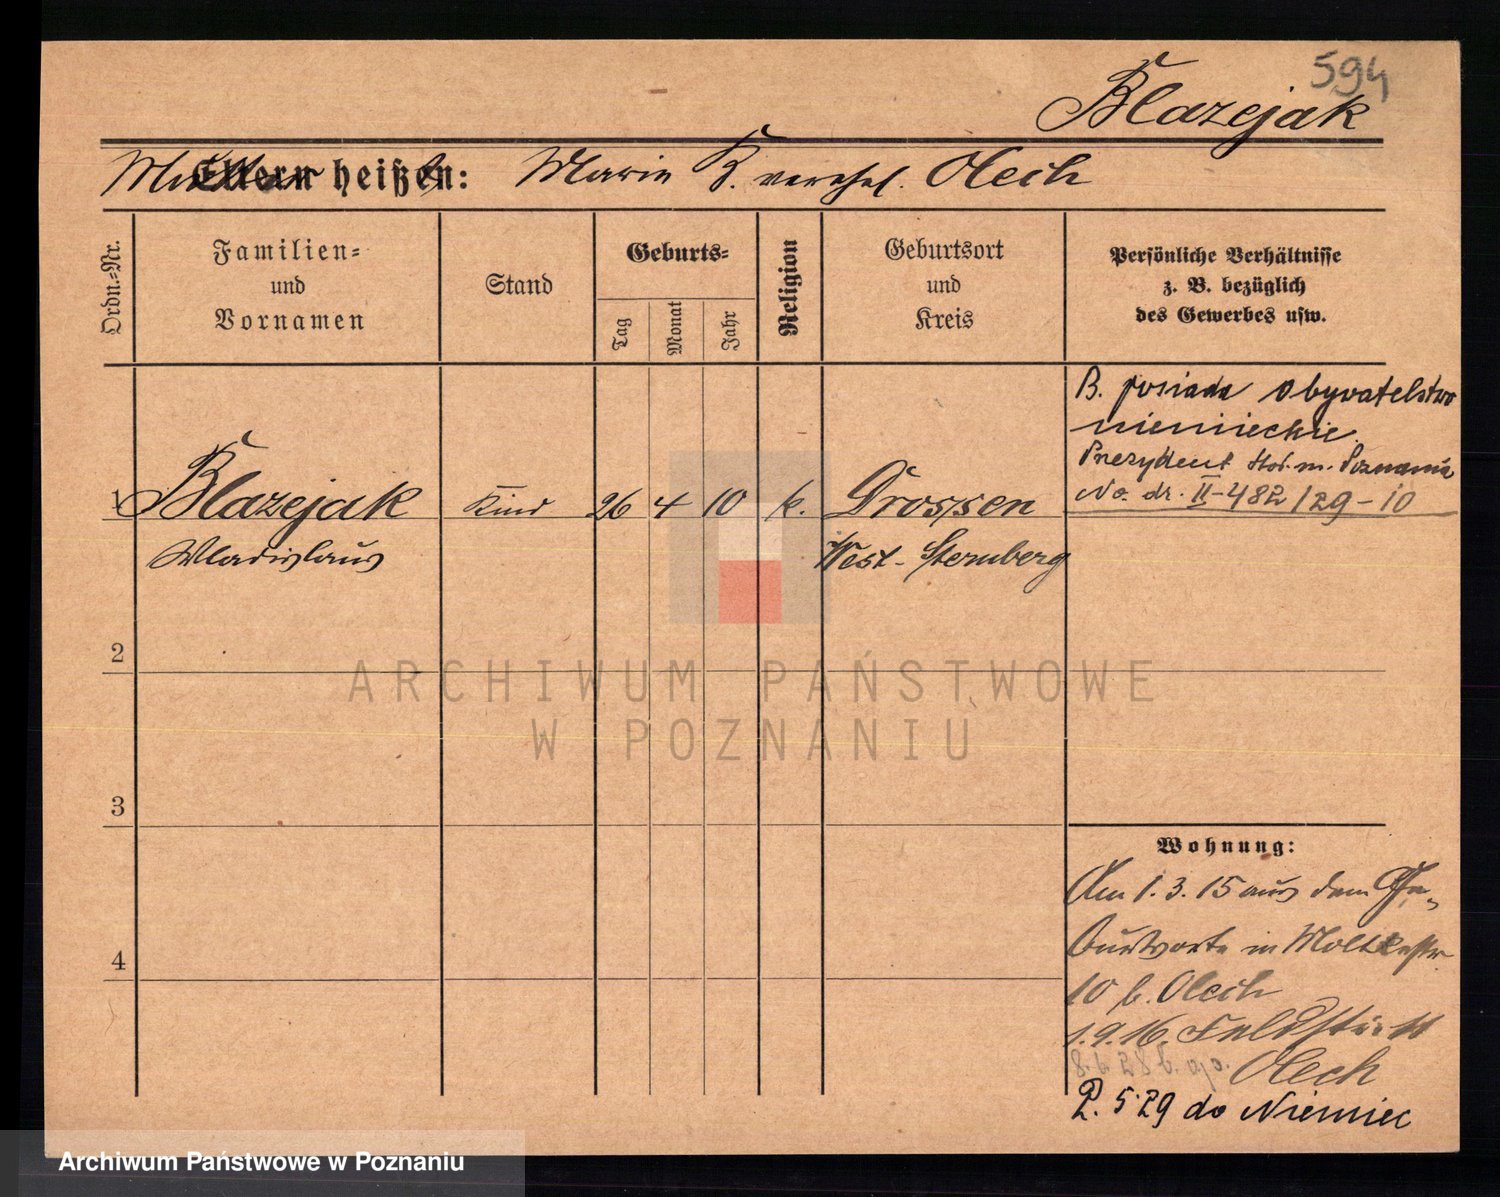 594
Blazejak
Mutter heißt: Marie B. verehel. Olech
Ordn.-Nr.
Familien-
und
Vornamen
Stand
Geburts-
Tag
Monat
Jahr
Religion
Geburtsort
und
Kreis
Persönliche Verhältnisse
z. B. bezüglich
des Gewerbes usw.
B. posiada obywatelstwo
niemieckie.
Prezydent stoł. m. Poznania
No. dr. II-482/29-10
1 Blazejak Kind 26 4 10 k. Drossen
Wladislaus West-Sternberg
2
3
4
Wohnung:
Am 1.3.15 aus dem Ge-
burtsorte in Moltkestr
10 b. Olech
1.9.16. Feldstr.
Olech
2.5.29 do Niemiec
ARCHIWUM PAŃSTWOWE
W POZNANIU
Archiwum Państwowe w Poznaniu